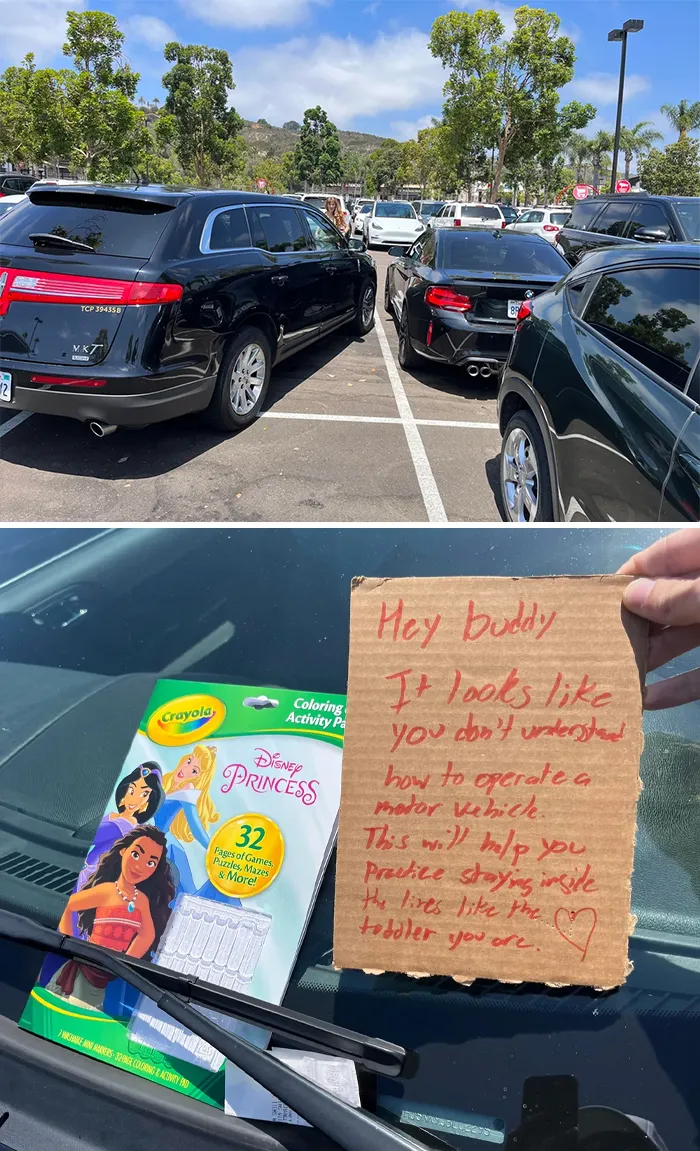 TCP 39435B
MKT
Crayola
Coloring
Activity Pa
Disney
PRINCESS
32
Pages of Games,
Puzzles, Mazes
& More!
7 WASHABLE MINI MARKERS • 32-PAGE COLORING & ACTIVITY PAD
Hey buddy
It looks like
you don't understand
how to operate a
motor vehicle.
This will help you
Practice staying inside
the lines like the
toddler you are.